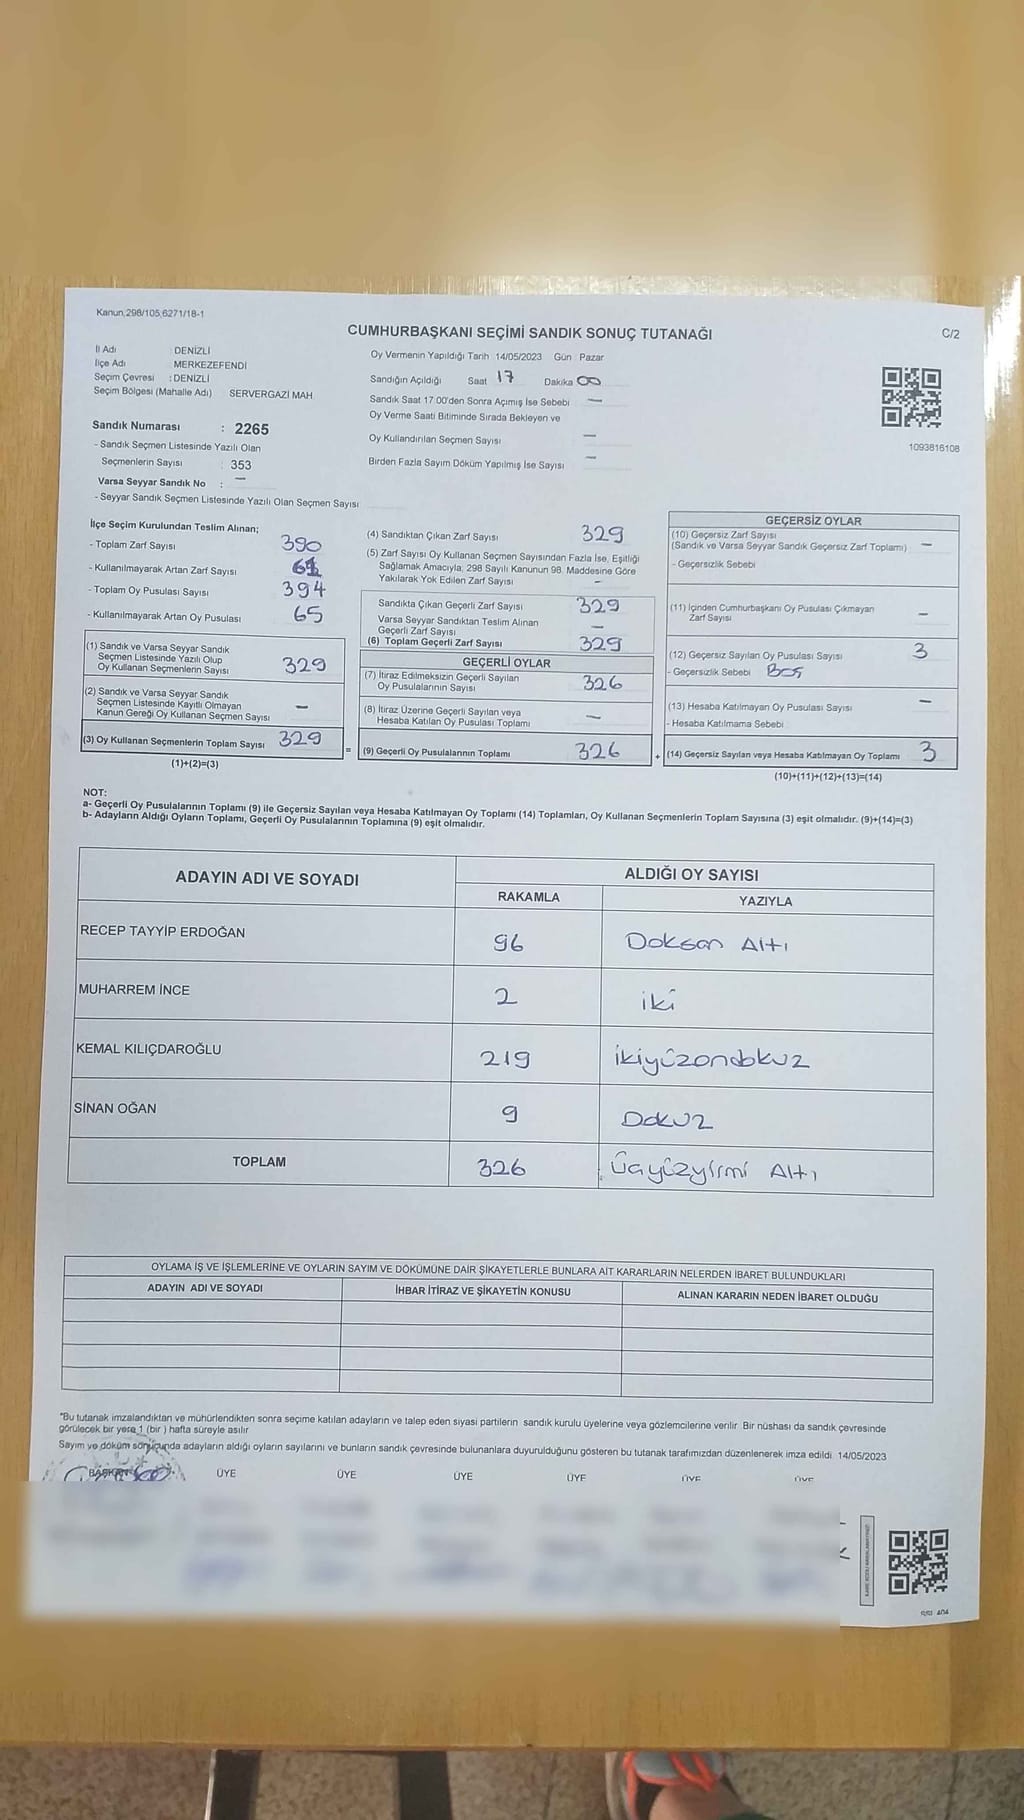 Kanun,298/105,6271/18-1
CUMHURBAŞKANI SEÇİMİ SANDIK SONUÇ TUTANAĞI
C/2
İl Adı : DENİZLİ
İlçe Adı : MERKEZEFENDİ
Seçim Çevresi : DENİZLİ
Seçim Bölgesi (Mahalle Adı) SERVERGAZİ MAH
Sandık Numarası : 2265
- Sandık Seçmen Listesinde Yazılı Olan
Seçmenlerin Sayısı : 353
Varsa Seyyar Sandık No : —
- Seyyar Sandık Seçmen Listesinde Yazılı Olan Seçmen Sayısı
Oy Vermenin Yapıldığı Tarih 14/05/2023 Gün : Pazar
Sandığın Açıldığı Saat 17 Dakika 00
Sandık Saat 17:00'den Sonra Açımış İse Sebebi —
Oy Verme Saati Bitiminde Sırada Bekleyen ve
Oy Kullandırılan Seçmen Sayısı —
Birden Fazla Sayım Döküm Yapılmış İse Sayısı —
1093816108
İlçe Seçim Kurulundan Teslim Alınan;
- Toplam Zarf Sayısı 390
- Kullanılmayarak Artan Zarf Sayısı 61
- Toplam Oy Pusulası Sayısı 394
- Kullanılmayarak Artan Oy Pusulası 65
(1) Sandık ve Varsa Seyyar Sandık
Seçmen Listesinde Yazılı Olup
Oy Kullanan Seçmenlerin Sayısı 329
(2) Sandık ve Varsa Seyyar Sandık
Seçmen Listesinde Kayıtlı Olmayan
Kanun Gereği Oy Kullanan Seçmen Sayısı —
(3) Oy Kullanan Seçmenlerin Toplam Sayısı 329
(1)+(2)=(3)
=
(4) Sandıktan Çıkan Zarf Sayısı 329
(5) Zarf Sayısı Oy Kullanan Seçmen Sayısından Fazla İse, Eşitliği
Sağlamak Amacıyla, 298 Sayılı Kanunun 98. Maddesine Göre
Yakılarak Yok Edilen Zarf Sayısı —
Sandıkta Çıkan Geçerli Zarf Sayısı 329
Varsa Seyyar Sandıktan Teslim Alınan
Geçerli Zarf Sayısı —
(6) Toplam Geçerli Zarf Sayısı 329
GEÇERLİ OYLAR
(7) İtiraz Edilmeksizin Geçerli Sayılan
Oy Pusulalarının Sayısı 326
(8) İtiraz Üzerine Geçerli Sayılan veya
Hesaba Katılan Oy Pusulası Toplamı —
(9) Geçerli Oy Pusulalarının Toplamı 326
+
GEÇERSİZ OYLAR
(10) Geçersiz Zarf Sayısı
(Sandık ve Varsa Seyyar Sandık Geçersiz Zarf Toplamı) —
- Geçersizlik Sebebi
(11) İçinden Cumhurbaşkanı Oy Pusulası Çıkmayan
Zarf Sayısı —
(12) Geçersiz Sayılan Oy Pusulası Sayısı 3
- Geçersizlik Sebebi Boş
(13) Hesaba Katılmayan Oy Pusulası Sayısı —
- Hesaba Katılmama Sebebi
(14) Geçersiz Sayılan veya Hesaba Katılmayan Oy Toplamı 3
(10)+(11)+(12)+(13)=(14)
NOT:
a- Geçerli Oy Pusulalarının Toplamı (9) ile Geçersiz Sayılan veya Hesaba Katılmayan Oy Toplamı (14) Toplamları, Oy Kullanan Seçmenlerin Toplam Sayısına (3) eşit olmalıdır. (9)+(14)=(3)
b- Adayların Aldığı Oyların Toplamı, Geçerli Oy Pusulalarının Toplamına (9) eşit olmalıdır.
ADAYIN ADI VE SOYADI ALDIĞI OY SAYISI
RAKAMLA YAZIYLA
RECEP TAYYİP ERDOĞAN 96 Doksan Altı
MUHARREM İNCE 2 iki
KEMAL KILIÇDAROĞLU 219 ikiyüzondokuz
SİNAN OĞAN 9 Dokuz
TOPLAM 326 Üçyüzyirmi Altı
OYLAMA İŞ VE İŞLEMLERİNE VE OYLARIN SAYIM VE DÖKÜMÜNE DAİR ŞİKAYETLERLE BUNLARA AİT KARARLARIN NELERDEN İBARET BULUNDUKLARI
ADAYIN ADI VE SOYADI İHBAR İTİRAZ VE ŞİKAYETİN KONUSU ALINAN KARARIN NEDEN İBARET OLDUĞU
*Bu tutanak imzalandıktan ve mühürlendikten sonra seçime katılan adayların ve talep eden siyasi partilerin sandık kurulu üyelerine veya gözlemcilerine verilir. Bir nüshası da sandık çevresinde
görülecek bir yere 1 (bir ) hafta süreyle asılır
Sayım ve döküm sonucunda adayların aldığı oyların sayılarını ve bunların sandık çevresinde bulunanlara duyurulduğunu gösteren bu tutanak tarafımızdan düzenlenerek imza edildi. 14/05/2023
BAŞKAN ÜYE ÜYE ÜYE ÜYE ÜYE ÜYE